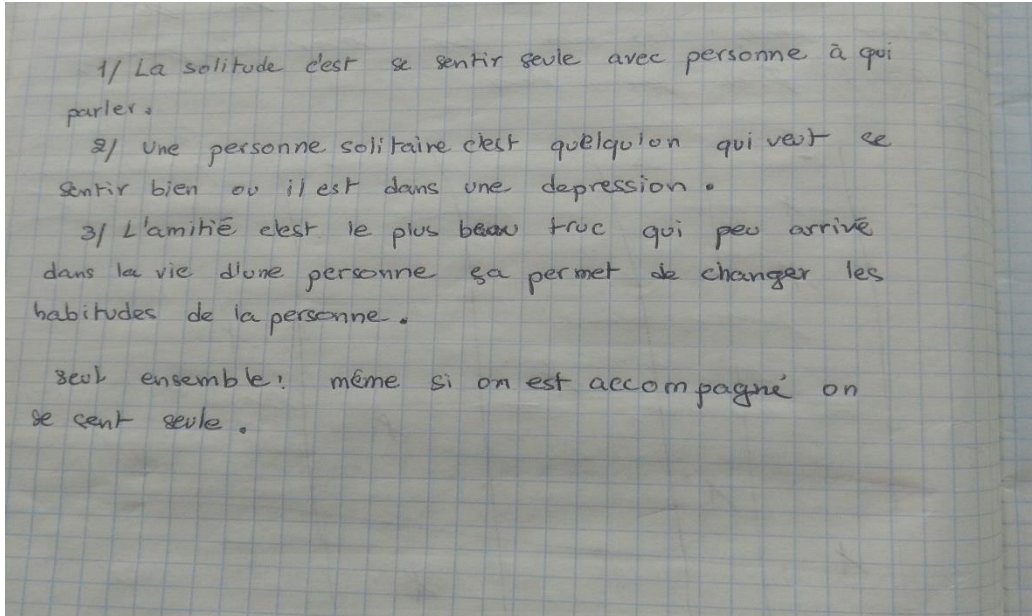 1/ La solitude c'est se sentir seule avec personne à qui
parler.
2/ Une personne solitaire c'est quelqu'on qui veut se
sentir bien ou il est dans une depression.
3/ L'amitié c'est le plus beau truc qui peu arrivé
dans la vie d'une personne sa permet de changer les
habitudes de la personne.
seul ensemble: même si on est accompagné on
se cent seule.